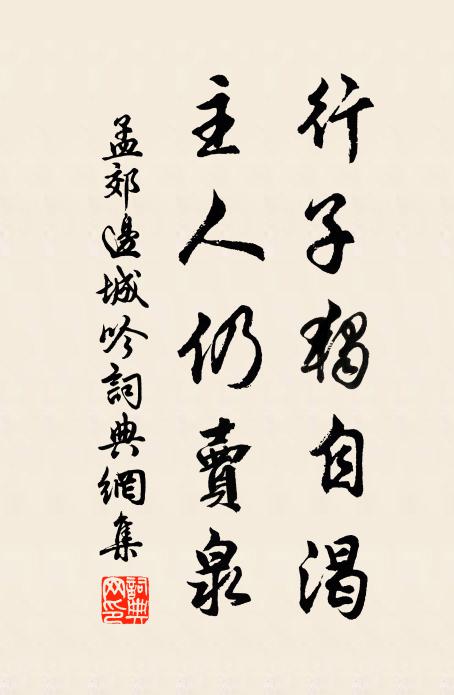 行子獨自渴
主人仍賣泉
孟郊邊城吟詞典網集
詞典网印